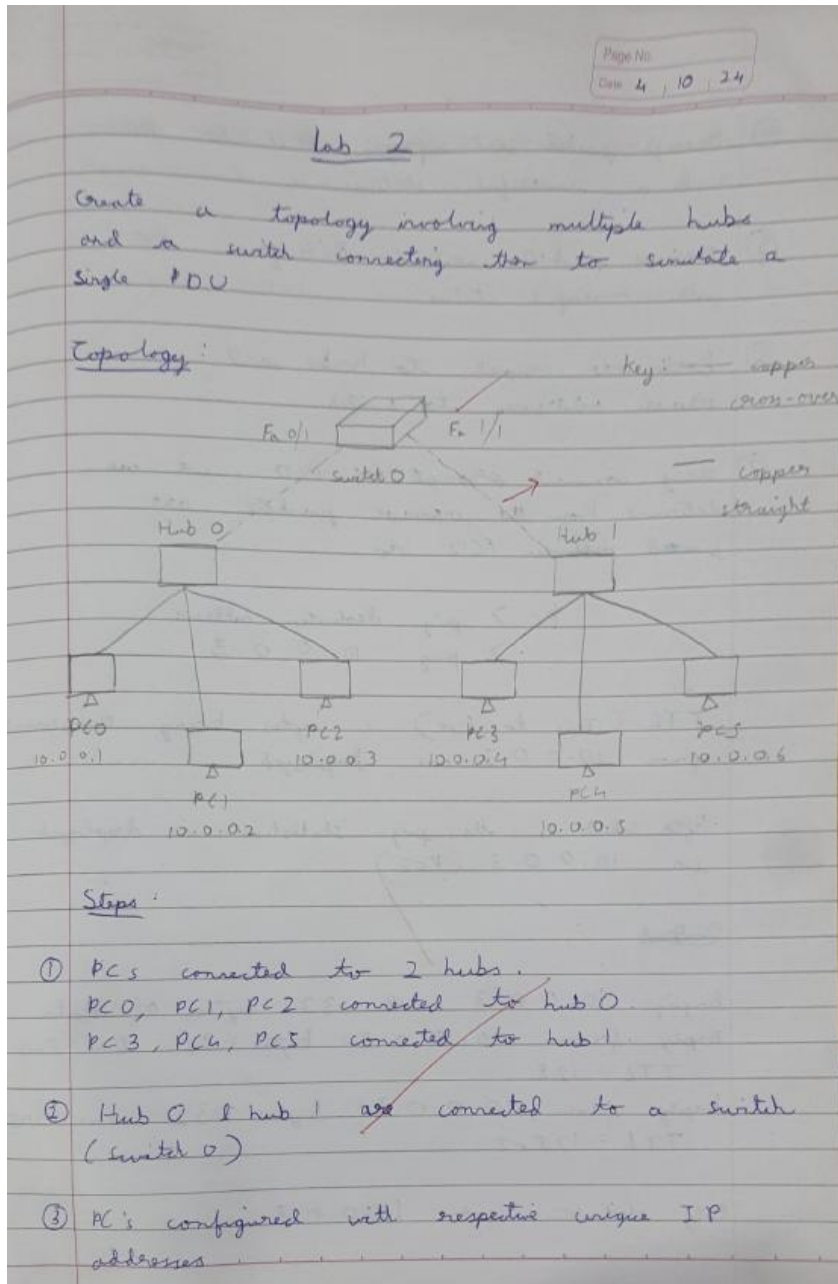 Page No
Date 4 10 24
Lab 2
Create a topology involving multiple hubs
and a switch connecting them to simulate a
single PDU
Topology:
key: copper
cross-over
Fa 0/1
Fa 1/1
switch 0
copper
straight
Hub 0
Hub 1
PC0
PC2
PC3
PC5
10.0.0.1
10.0.0.3
10.0.0.4
10.0.0.6
PC1
PC4
10.0.0.2
10.0.0.5
Steps:
① PCs connected to 2 hubs.
PC0, PC1, PC2 connected to hub 0
PC3, PC4, PC5 connected to hub 1
② Hub 0 & hub 1 are connected to a switch
(switch 0)
③ PC's configured with respective unique IP
addresses